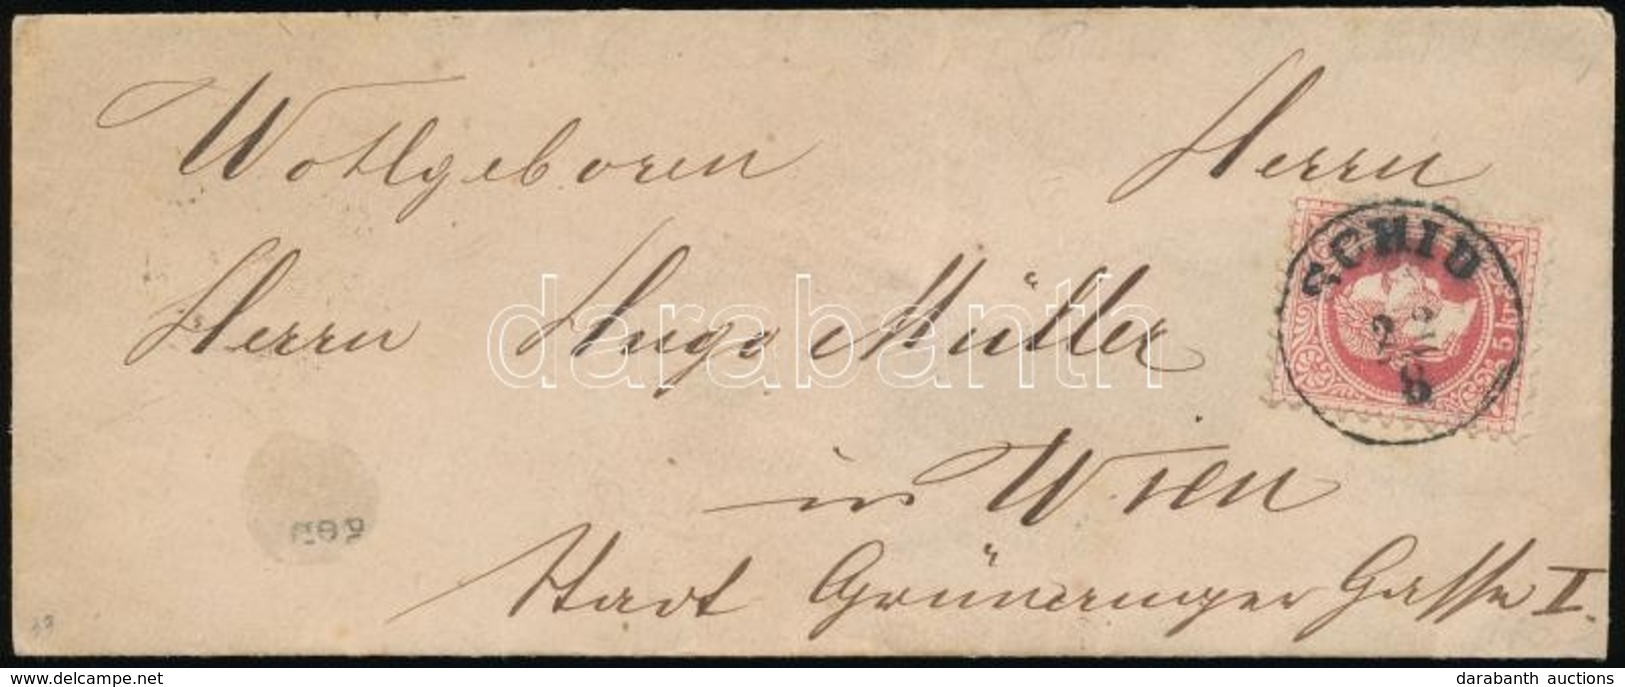 Wohlgeboren Herrn
Herrn Hugo Müller
in Wien
Stadt Grünanger Gasse I.
5 kr
22
8
darabanth
delcampe.net
darabanth auctions